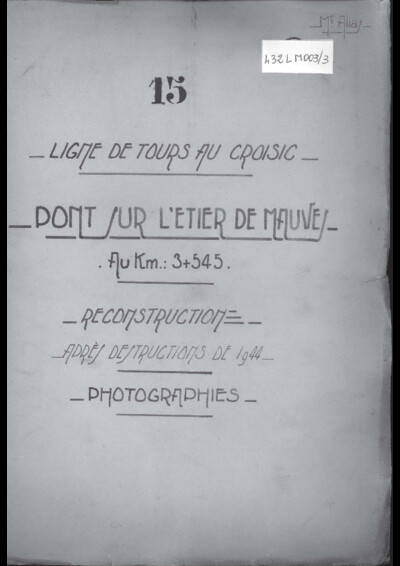 Mr Alias
432LM003/3
15
_ LIGNE DE TOURS AU CROISIC _
_ PONT SUR L'ETIER DE MAUVES _
. AU Km.: 3+545.
_ RECONSTRUCTION = _
_ APRÈS DESTRUCTIONS DE 1944 _
_ PHOTOGRAPHIES _